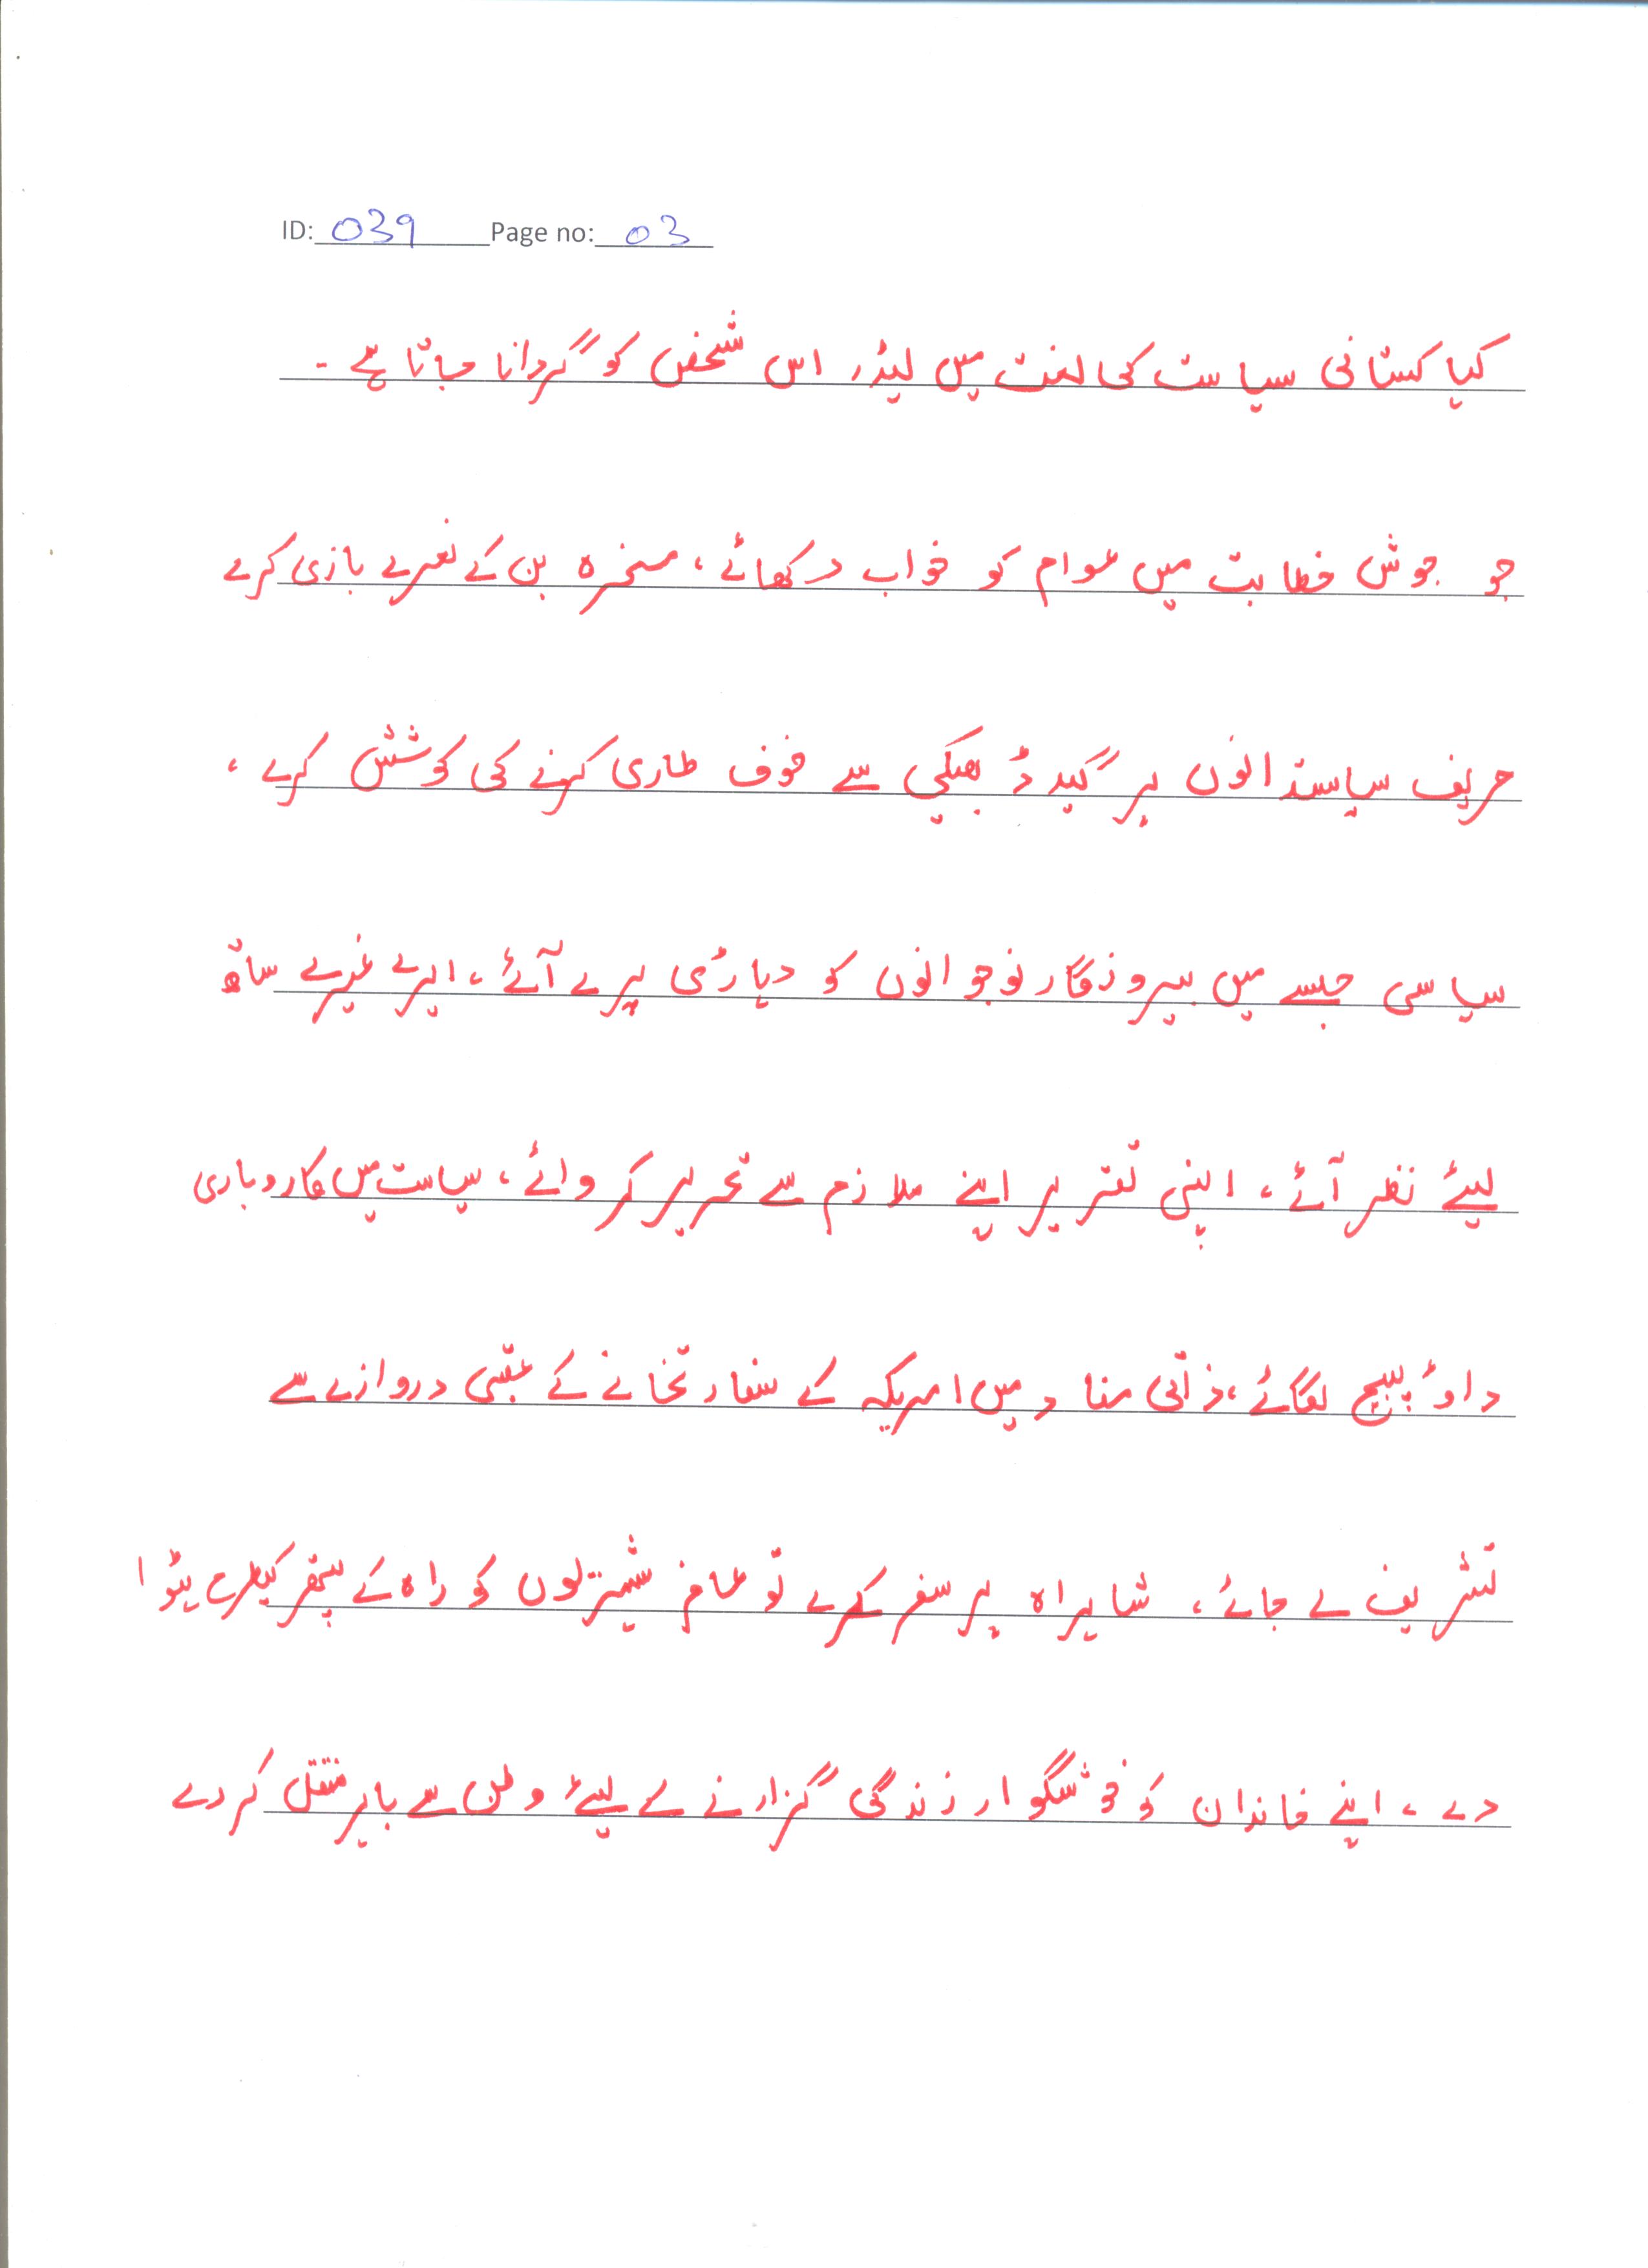 ID: 039 Page no: 03
کیا کستانی سیاست کی لغت میں لیڈر اس شخص کو گردانا جاتا ہے ۔
جو جوش خطابت میں عوام کو خواب دکھائے ، مسخرہ بن کے نعرے بازی کرے
حریف سیاستدانوں پر گیدڈ بھبکی سے خوف طاری کرنے کی کوشش کرے ،
سیاسی جلسے میں بیروزگار نوجوانوں کو دہاڑی پر لے آئے ، ایرے غیرے ساتھ
لیئے نظر آئے ، اپنی تقریر اپنے ملازم سے تحریر کروائے ، سیاست میں کاروباری
داؤ پیچ لگائے ، ذاتی مفاد میں امریکہ کے سفارتخانے کے عقبی دروازے سے
تشریف لے جائے ، شاہراہ پر سفر کرے تو عام شہریوں کو راہ کے پتھر کیطرح ہٹوا
دے ، اپنے خاندان کو خوشگوار زندگی گزارنے کے لیئے وطن سے باہر منتقل کر دے